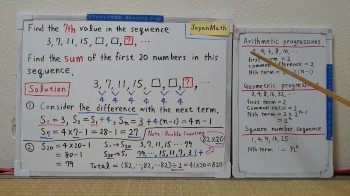 Find the 7th value in the sequence
JapanMath
3, 7, 11, 15, □, □, ?, ⋯
Find the sum of the first 20 numbers in this sequence.
Solution
3, 7, 11, 15, □, □, ?, ⋯
4 4 4 4 4 4
① Consider the difference with the next term.
S₁ = 3, S₂ = S₁ + 4, Sₙ = 3 + 4(n-1) = 4n - 1
S₇ = 4×7-1 = 28-1 = 27
Note: Double Counting
② S₂₀ = 4×20-1
= 80-1
= 79
S₁→S₂₀ 3, 7, 11, 15, ⋯, 79
S₂₀→S₁ 79, ⋯, 15, 11, 7, 3
82×20
Total = (82, ⋯, 82, ⋯, 82) ÷ 2 = 41×20 = 820
Arithmetic progressions
2, 4, 6, 8, 10, ⋯
first term = 2
common difference = 2
Nth term =
Geometric progression
2, 4, 8, 16, 32, ⋯
first term = 2
common ratio = 2
Nth term =
Square number sequence
1, 4, 9, 16, 25, ⋯
Nth term = n²